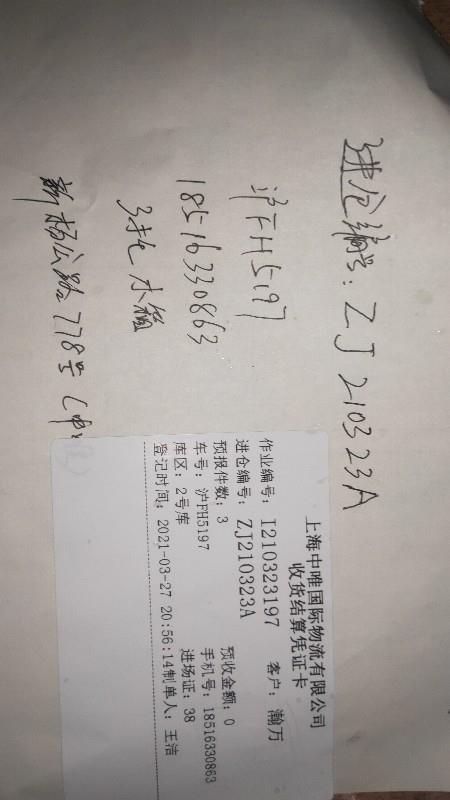 进仓编号: ZJ210323A
沪FH5197
18516330863
3托 水箱
新杨公路778号(中唯)
上海中唯国际物流有限公司
收货结算凭证卡
作业编号: I210323197 客户: 瀚万
进仓编号: ZJ210323A
预报件数: 3 预收金额: 0
车号: 沪FH5197 手机号: 18516330863
库区: 2号库 进场证: 38
登记时间: 2021-03-27 20:56:14制单人: 王洁